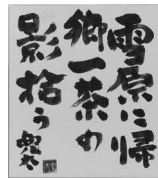 雪原に帰
郷一茶の
影拾う